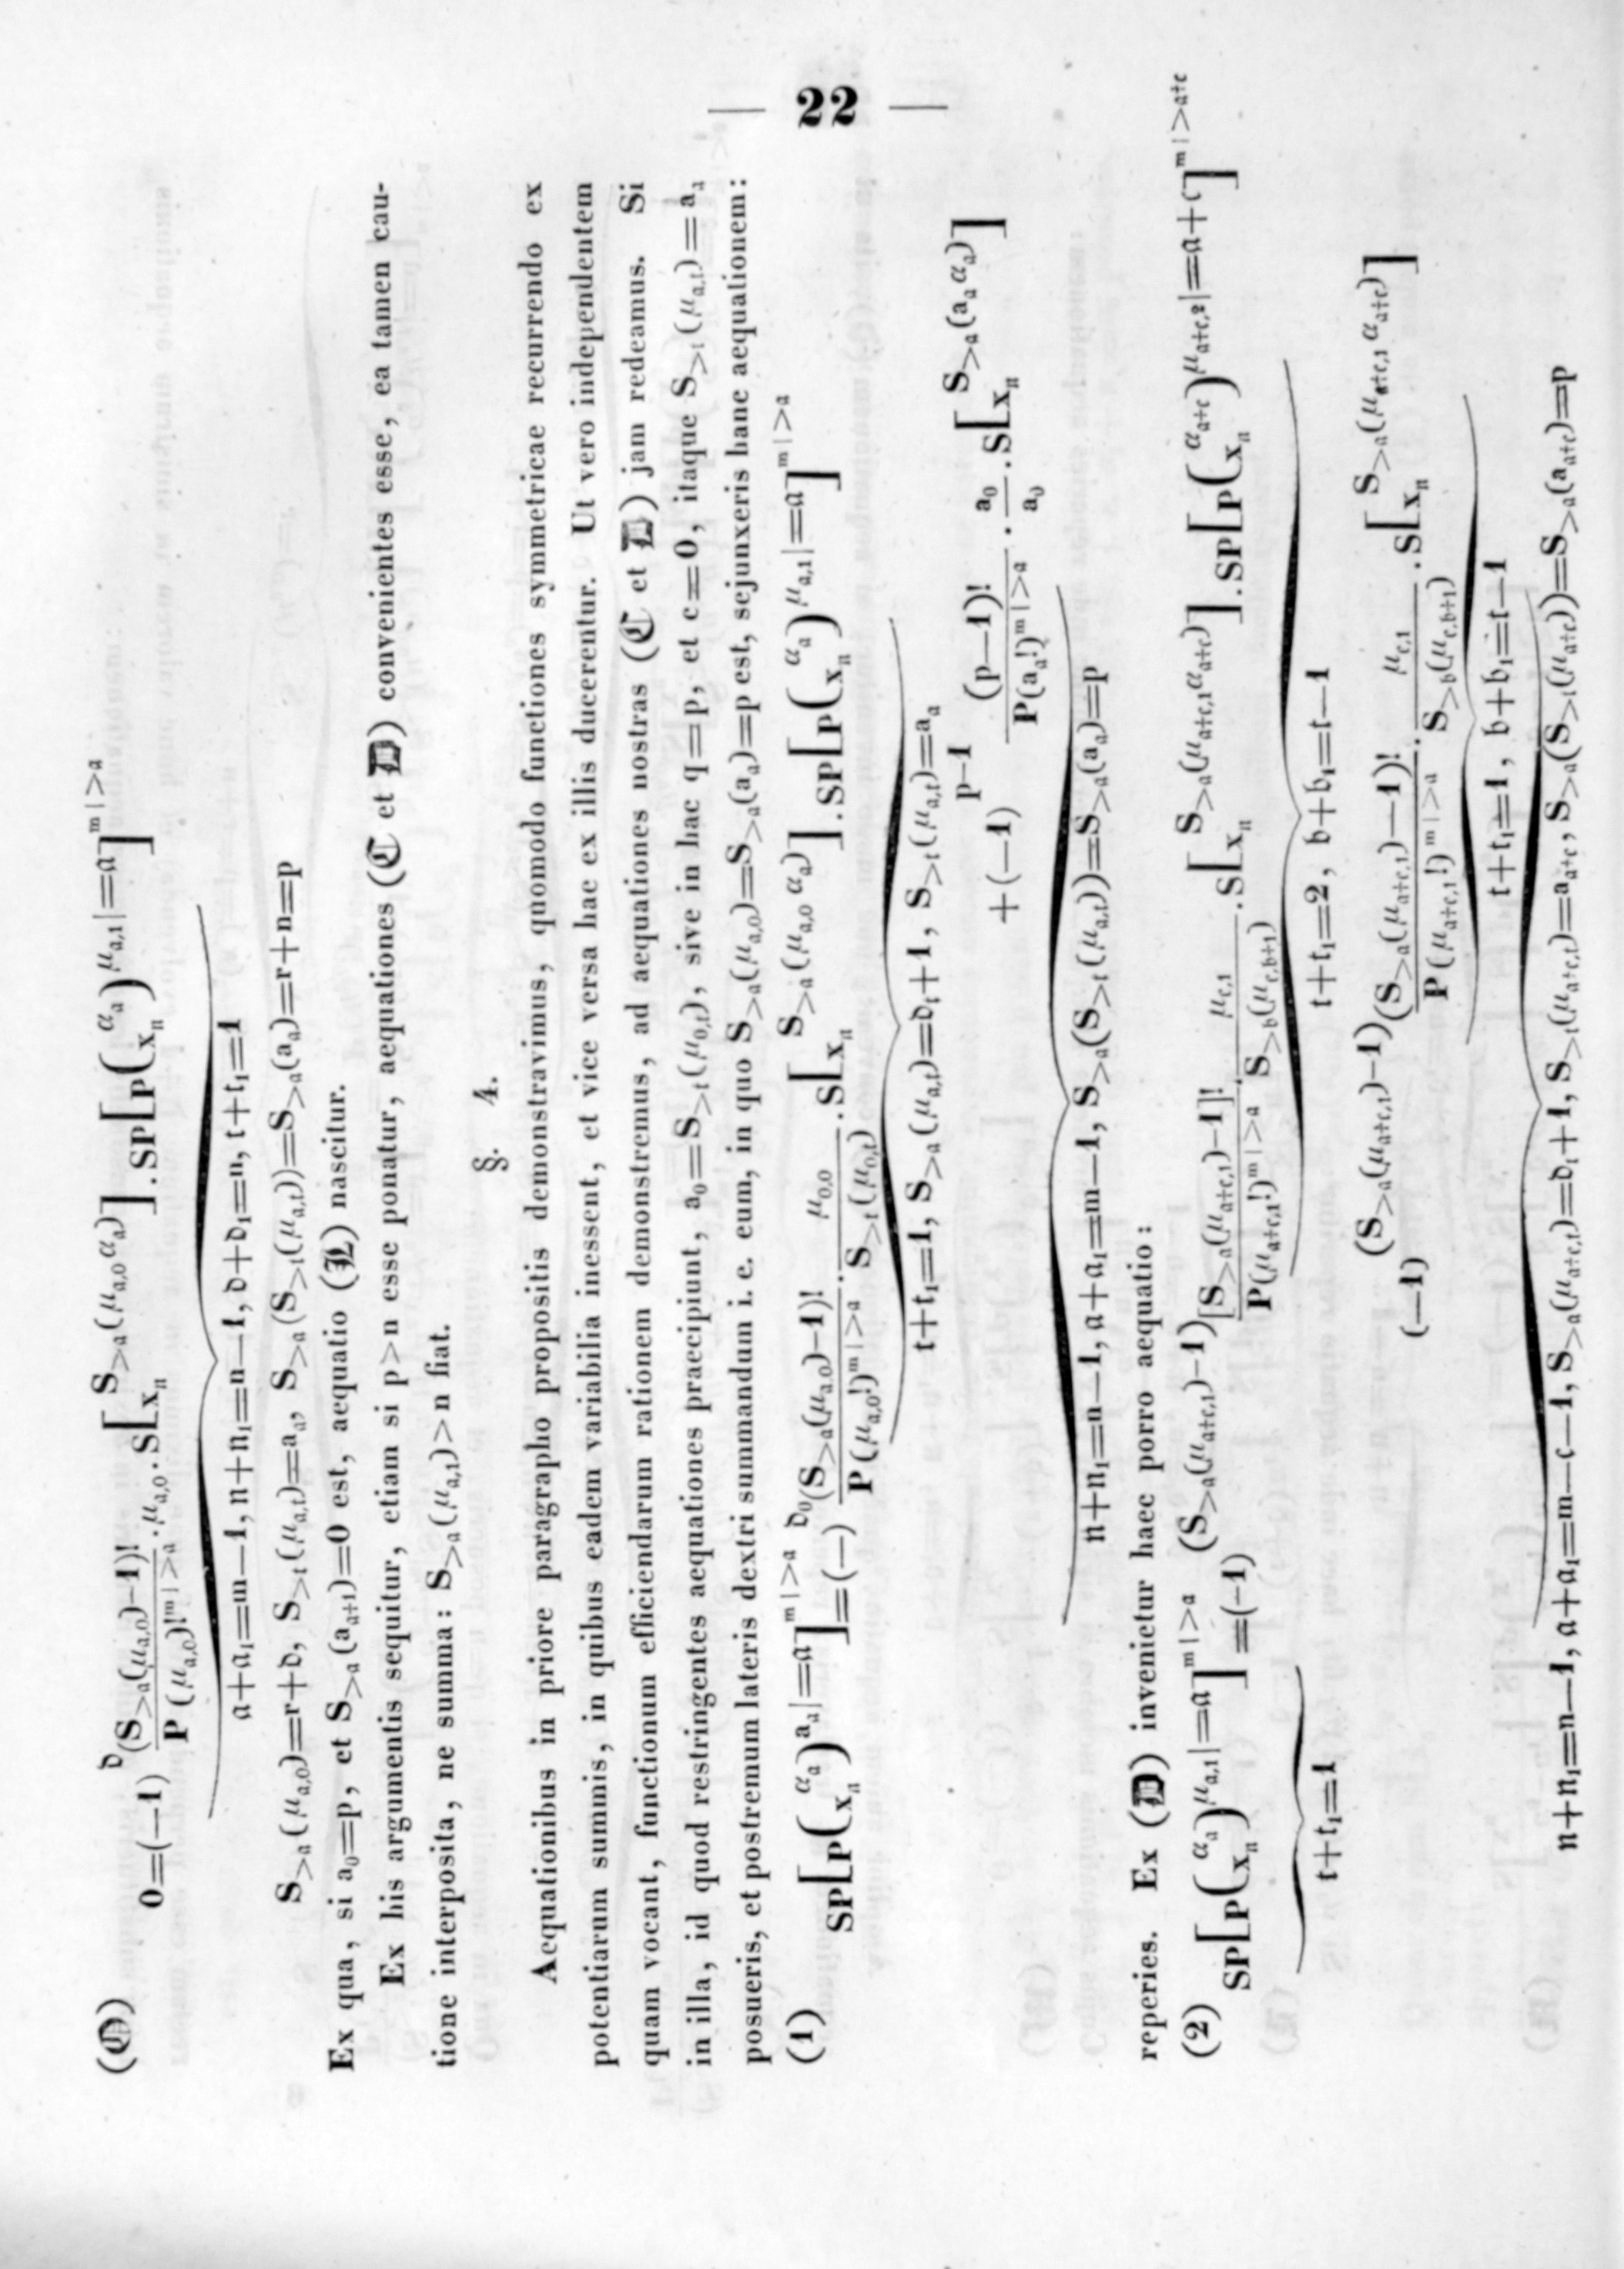 — 22 —
(𝔒) 0=(—1)^𝔡 (S_{>a}(μ_{a,0})—1)! / P(μ_{a,0})!^{m|>a} · μ_{a,0} · S[x_n^{S_{>a}(μ_{a,0} α_a)}] . SP[P(x_n^{α_a})^{μ_{a,1}}|=a]^{m|>a}
a+a₁=m—1, n+n₁=n—1, 𝔡+𝔡₁=n, t+t₁=1
S_{>a}(μ_{a,0})=r+𝔡, S_{>t}(μ_{a,t})=a_a, S_{>a}(S_{>t}(μ_{a,t}))=S_{>a}(a_a)=r+n=p
Ex qua, si a₀=p, et S_{>a}(a_{a+1})=0 est, aequatio (𝔏) nascitur.
Ex his argumentis sequitur, etiam si p>n esse ponatur, aequationes (ℭ et 𝔇) convenientes esse, ea tamen cau-
tione interposita, ne summa: S_{>a}(μ_{a,1})>n fiat.
§. 4.
Aequationibus in priore paragrapho propositis demonstravimus, quomodo functiones symmetricae recurrendo ex
potentiarum summis, in quibus eadem variabilia inessent, et vice versa hae ex illis ducerentur. Ut vero independentem
quam vocant, functionum efficiendarum rationem demonstremus, ad aequationes nostras (ℭ et 𝔇) jam redeamus. Si
in illa, id quod restringentes aequationes praecipiunt, a₀=S_{>t}(μ_{0,t}), sive in hac q=p, et c=0, itaque S_{>t}(μ_{a,t})=a_a
posueris, et postremum lateris dextri summandum i. e. eum, in quo S_{>a}(μ_{a,0})=S_{>a}(a_a)=p est, sejunxeris hanc aequationem:
(1) SP[P(x_n^{α_a})^{a_a}|=a]^{m|>a}=(—)^{𝔡₀} (S_{>a}(μ_{a,0})—1)! / P(μ_{a,0}!)^{m|>a} · μ_{0,0} / S_{>t}(μ_{0,t}) . S[x_n^{S_{>a}(μ_{a,0} α_a)}] . SP[P(x_n^{α_a})^{μ_{a,1}}|=a]^{m|>a}
t+t₁=1, S_{>a}(μ_{a,t})=𝔡_t+1, S_{>t}(μ_{a,t})=a_a
+(—1)^{p—1} (p—1)! / P(a_a!)^{m|>a} · a₀ / a₀ . S[x_n^{S_{>a}(a_a α_a)}]
n+n₁=n—1, a+a₁=m—1, S_{>a}(S_{>t}(μ_{a,t}))=S_{>a}(a_a)=p
reperies. Ex (𝔇) invenietur haec porro aequatio:
(2) SP[P(x_n^{α_a})^{μ_{a,1}}|=a]^{m|>a}=(—1)^{(S_{>a}(μ_{a+c,1})—1)} [S_{>a}(μ_{a+c,1})—1]! / P(μ_{a+c,1}!)^{m|>a} · μ_{c,1} / S_{>b}(μ_{c,b+1}) . S[x_n^{S_{>a}(μ_{a+c,1} α_{a+c})}] . SP[P(x_n^{α_{a+c}})^{μ_{a+c,2}}|=a+c]^{m|>a+c}
t+t₁=1
t+t₁=2, b+b₁=t—1
(—1)^{(S_{>a}(μ_{a+c,1})—1)} (S_{>a}(μ_{a+c,1})—1)! / P(μ_{a+c,1}!)^{m|>a} · μ_{c,1} / S_{>b}(μ_{c,b+1}) . S[x_n^{S_{>a}(μ_{a+c,1} α_{a+c})}]
t+t₁=1, b+b₁=t—1
n+n₁=n—1, a+a₁=m—c—1, S_{>a}(μ_{a+c,t})=𝔡_t+1, S_{>t}(μ_{a+c,t})=a_{a+c}, S_{>a}(S_{>t}(μ_{a+c}))=S_{>a}(a_{a+c})=p